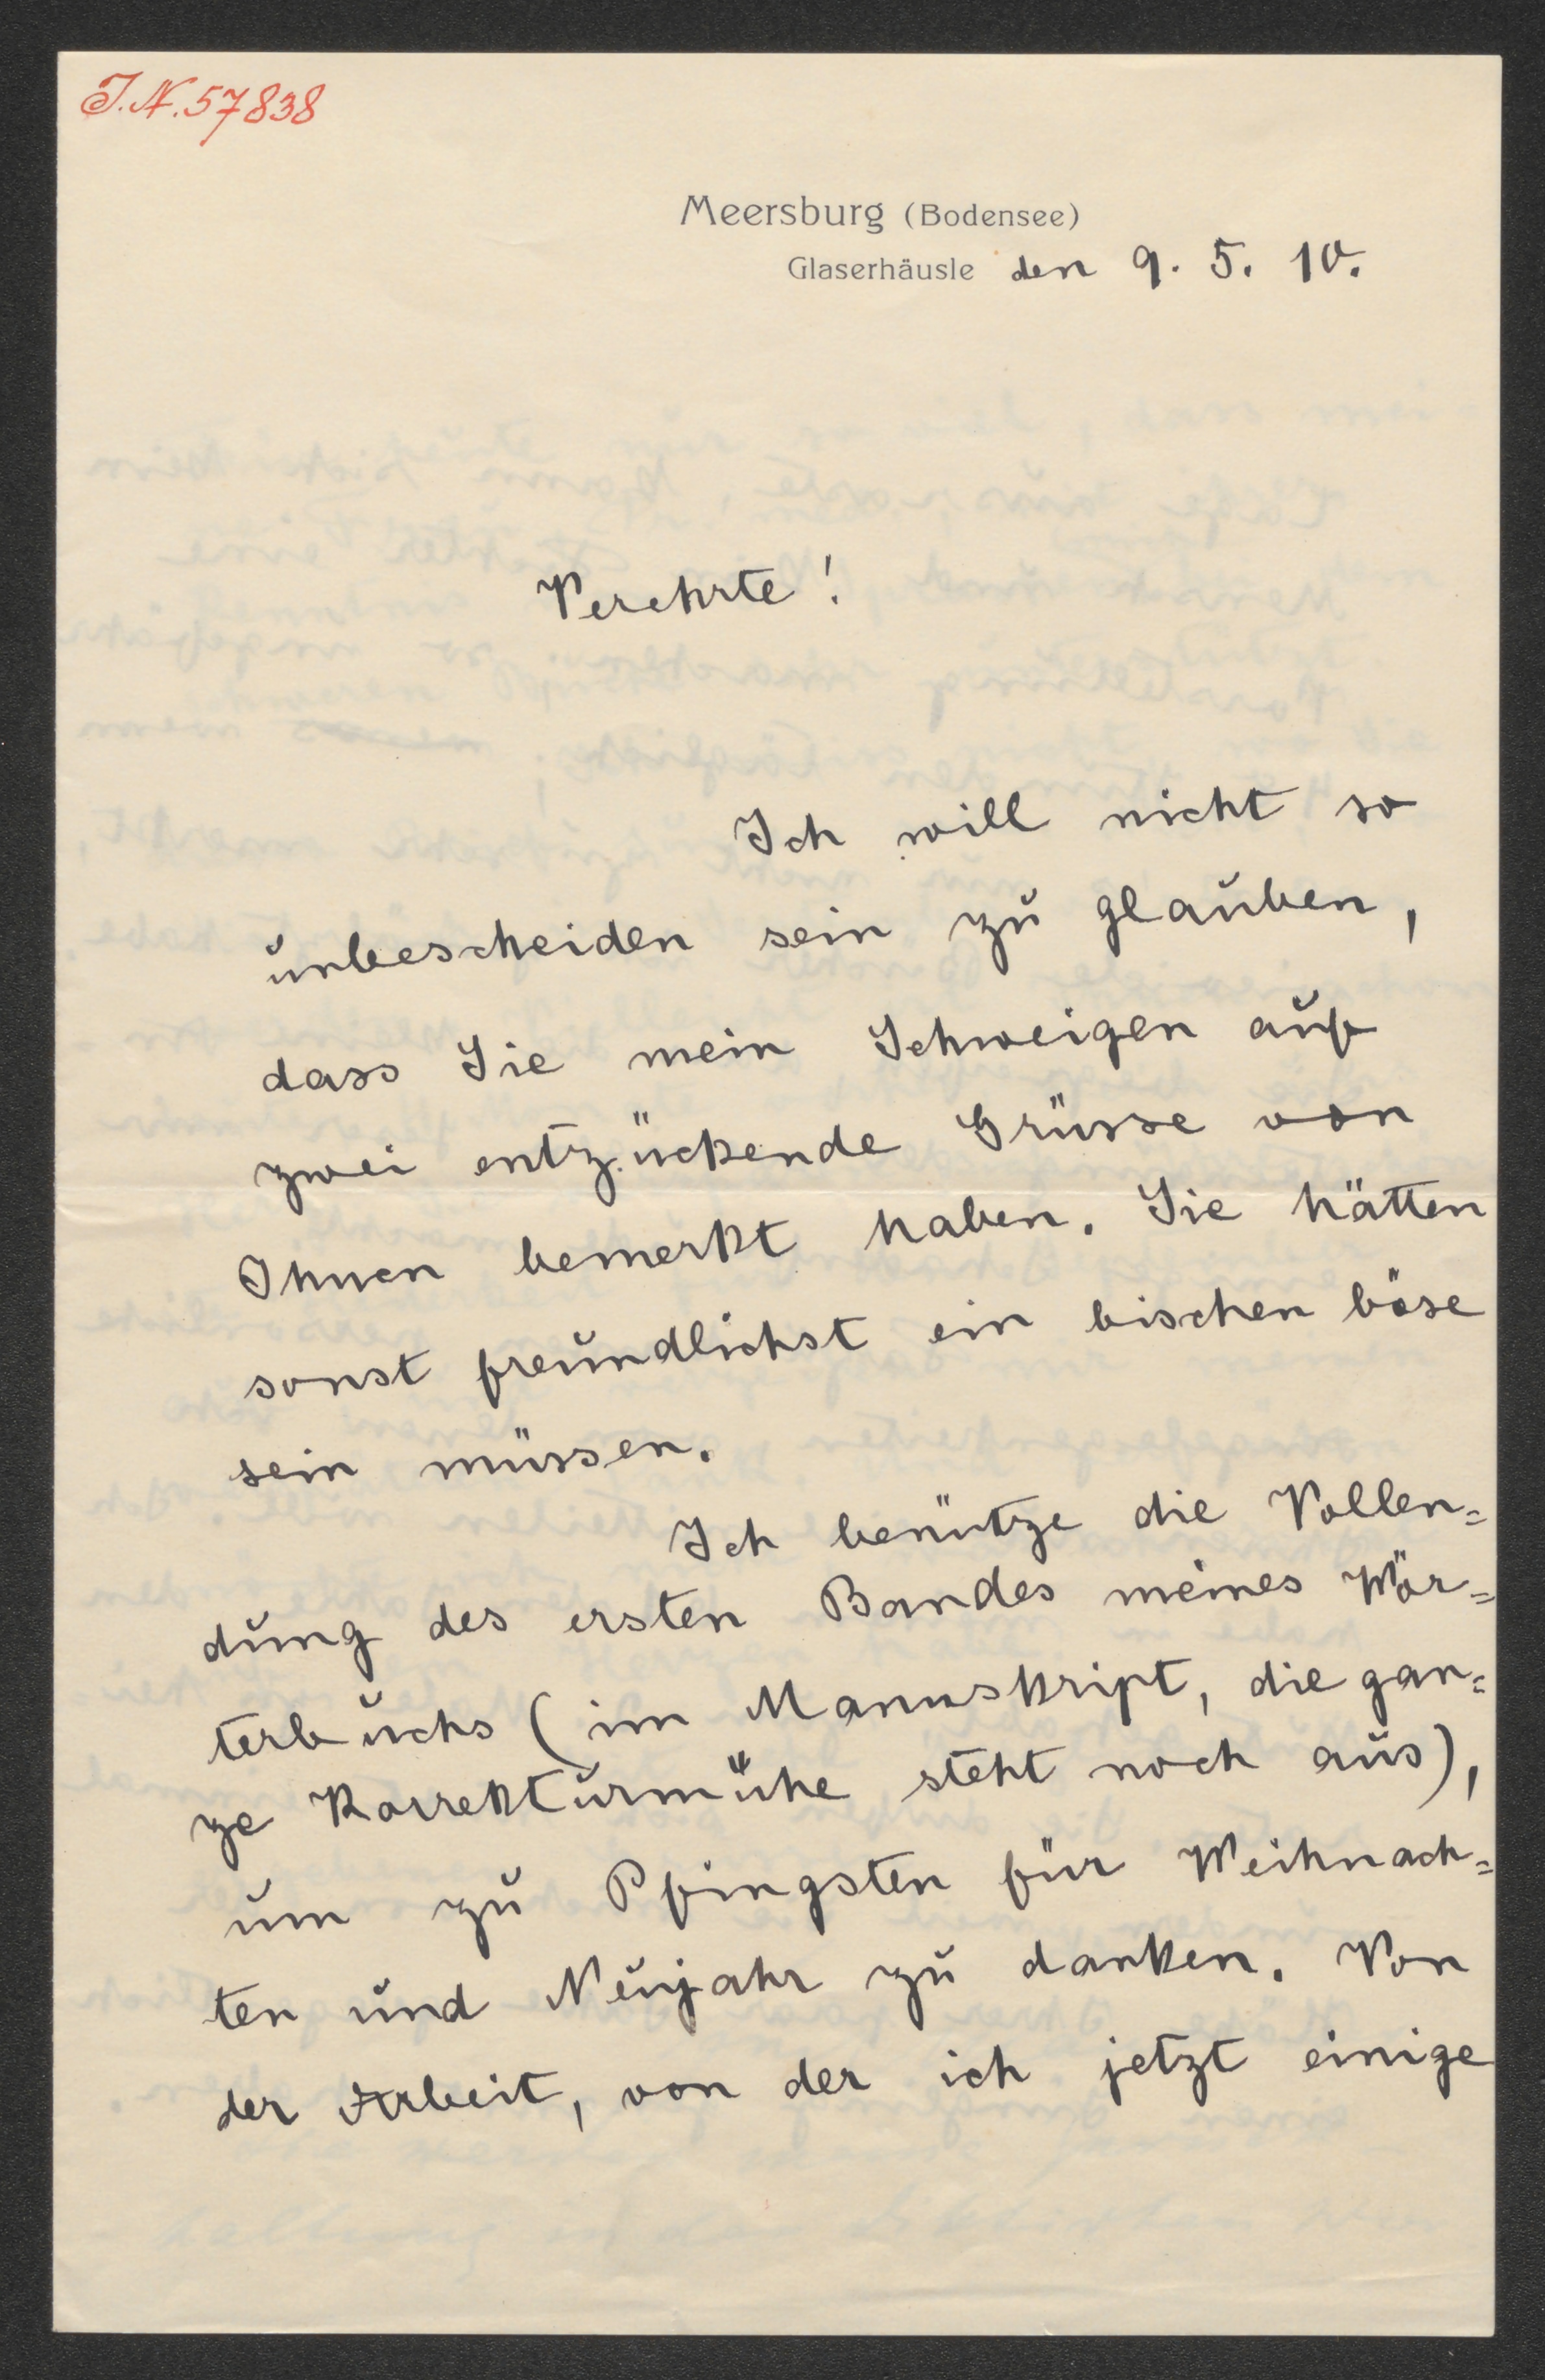 J.N. 57838
Meersburg (Bodensee)
Glaserhäusle den 9. 5. 10.
Verehrte!
Ich will nicht so
unbescheiden sein zu glauben,
dass Sie mein Schweigen auf
zwei entzückende Grüsse von
Ihnen bemerkt haben. Sie hätten
sonst freundlichst ein bischen böse
sein müssen.
Ich benütze die Vollen=
dung des ersten Bandes meines Wör=
terbuchs (im Manuskript, die gan=
ze Korrekturmühe steht noch aus),
um zu Pfingsten für Weihnach=
ten und Neujahr zu danken. Von
der Arbeit, von der ich jetzt einige